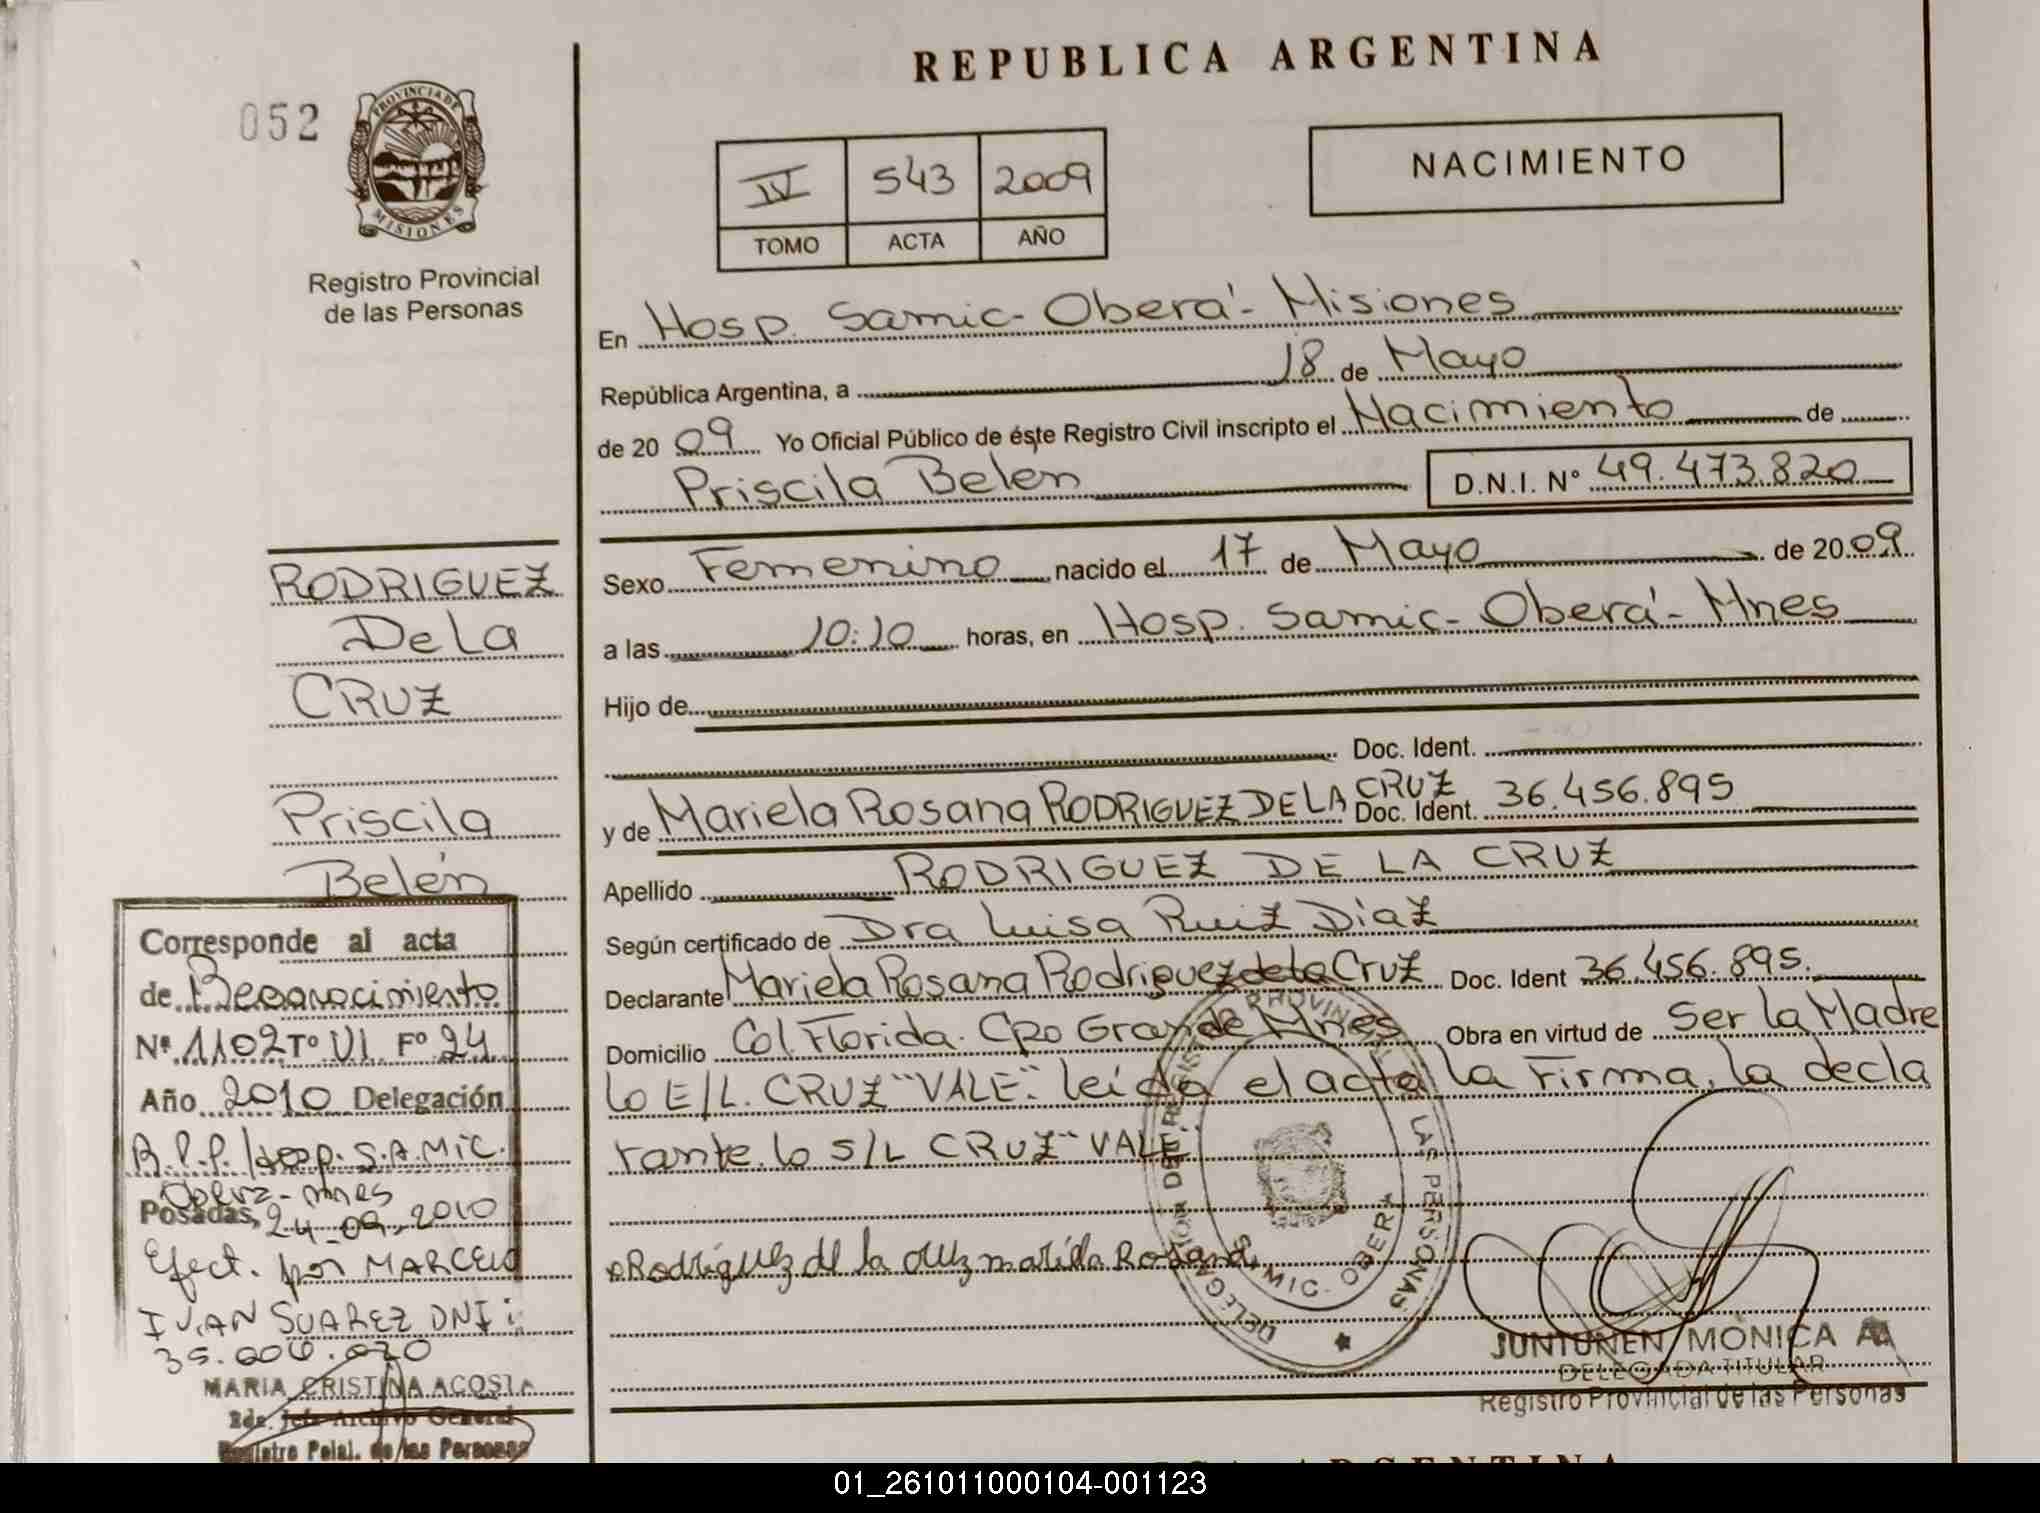 REPUBLICA ARGENTINA
052
PROVINCIA DE
MISIONES
Registro Provincial
de las Personas
IV 543 2009
TOMO ACTA AÑO
NACIMIENTO
En Hosp. Samic- Oberá- Misiones
República Argentina, a 18 de Mayo
de 2009 Yo Oficial Público de éste Registro Civil inscripto el Nacimiento de
Priscila Belen D.N.I. Nº 49.473.820
Sexo Femenino nacido el 17 de Mayo de 2009
a las 10:10 horas, en Hosp. Samic- Oberá- Mnes
Hijo de
Doc. Ident.
y de Mariela Rosana RODRIGUEZ DE LA CRUZ Doc. Ident. 36.456.895
Apellido RODRIGUEZ DE LA CRUZ
Según certificado de Dra Luisa Ruiz Diaz
Declarante Mariela Rosana Rodriguez de la Cruz Doc. Ident 36.456.895.
Domicilio Col Florida. Cpo Grande Mnes Obra en virtud de Ser la Madre
lo E/L. CRUZ "VALE". leida el acta la Firma, la decla
rante. lo S/L CRUZ "VALE"
Rodriguez de la cruz mariela Rosana
DELEGACION
LAS PERSONAS
SAMIC. OBERA
JUNTUNEN MONICA A
DELEGADA TITULAR
Registro Provincial de las Personas
RODRIGUEZ
De La
CRUZ
Priscila
Belén
Corresponde al acta
de Reconocimiento
Nº 1102 Tº VI Fº 24
Año 2010 Delegación
R.P.P. Hosp. S.A.MIC.
Obera - mnes
Posadas, 24-09-2010
Efect. por MARCELO
IVAN SUAREZ DNI:
35.006.020
MARIA CRISTINA ACOSTA
2da. Jefe Archivo General
Registre Pcial. de las Personas
ARGENTINA
01_261011000104-001123